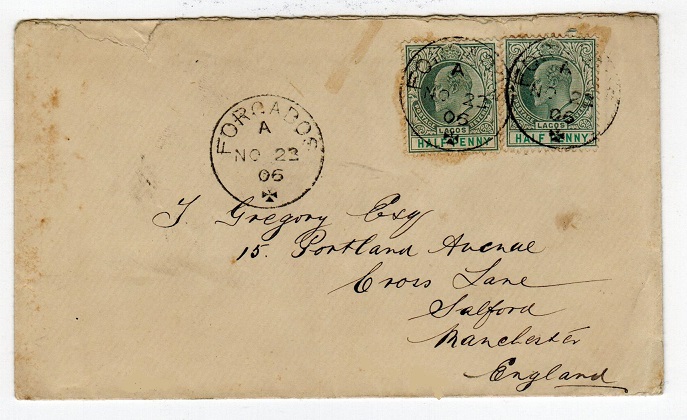 FORCADOS
A
NO 23
06
FOR
A
NO 23
06
LAGOS
HALF PENNY
A
NO 2
06
LAGOS
HALF PENNY
J. Gregory Esq
15. Portland Avenue
Cross Lane
Salford
Manchester
England